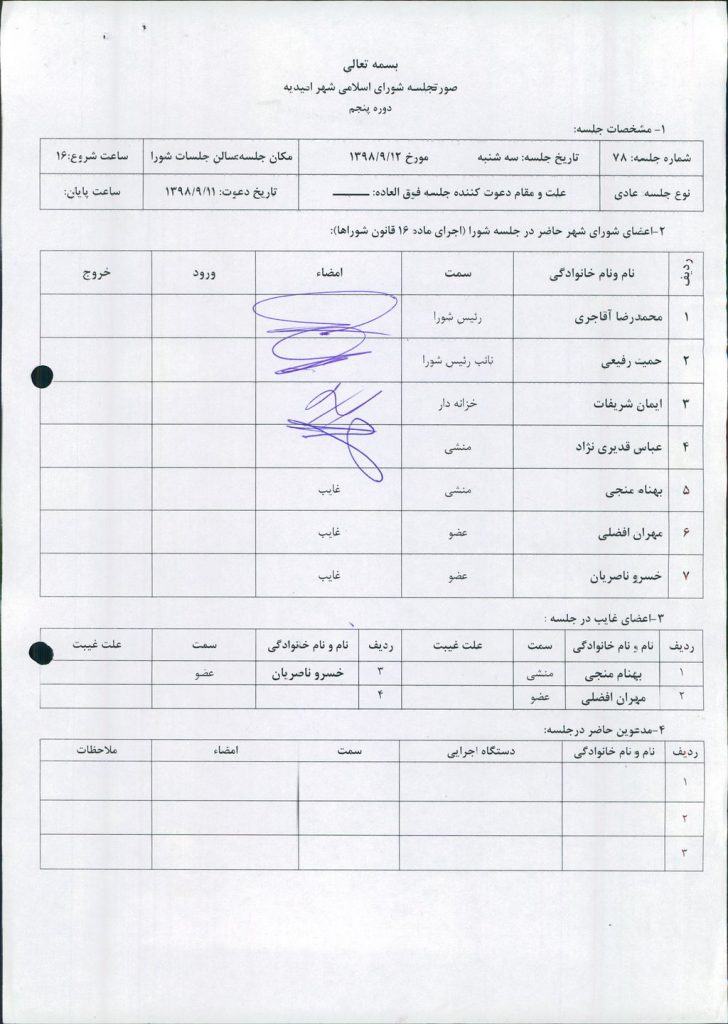 بسمه تعالی
صورتجلسه شورای اسلامی شهر امیدیه
دوره پنجم
۱- مشخصات جلسه:
شماره جلسه: ۷۸ تاریخ جلسه: سه شنبه مورخ ۱۳۹۸/۹/۱۲ مکان جلسه:سالن جلسات شورا ساعت شروع:۱۶
نوع جلسه: عادی علت و مقام دعوت کننده جلسه فوق العاده: ــــــــ تاریخ دعوت: ۱۳۹۸/۹/۱۱ ساعت پایان:
۲-اعضای شورای شهر حاضر در جلسه شورا (اجرای ماده ۱۶ قانون شوراها):
ردیف نام ونام خانوادگی سمت امضاء ورود خروج
۱ محمدرضا آقاجری رئیس شورا
۲ حمیت رفیعی نائب رئیس شورا
۳ ایمان شریفات خزانه دار
۴ عباس قدیری نژاد منشی
۵ بهنام منجی منشی غایب
۶ مهران افضلی عضو غایب
۷ خسرو ناصریان عضو غایب
۳-اعضای غایب در جلسه :
ردیف نام و نام خانوادگی سمت علت غیبت ردیف نام و نام خانوادگی سمت علت غیبت
۱ بهنام منجی منشی ۳ خسرو ناصریان عضو
۲ مهران افضلی عضو ۴
۴-مدعوین حاضر درجلسه:
ردیف نام و نام خانوادگی دستگاه اجرایی سمت امضاء ملاحظات
۱
۲
۳